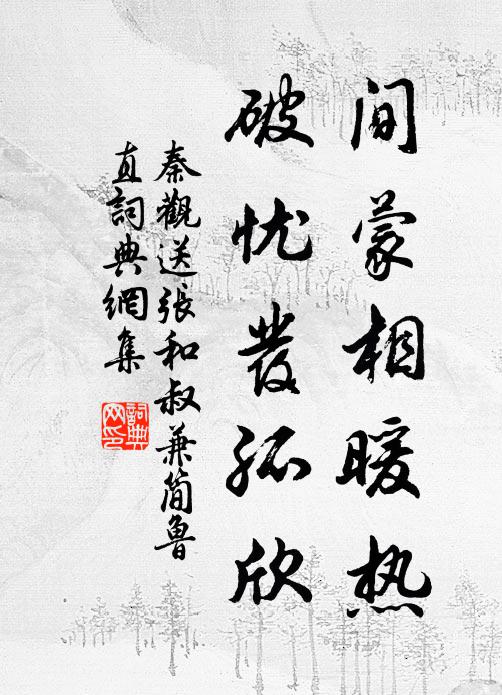 间蒙相暖热
破忧发孤欣
秦觀送張和叔兼简魯
直詞典網集
詞典
网印